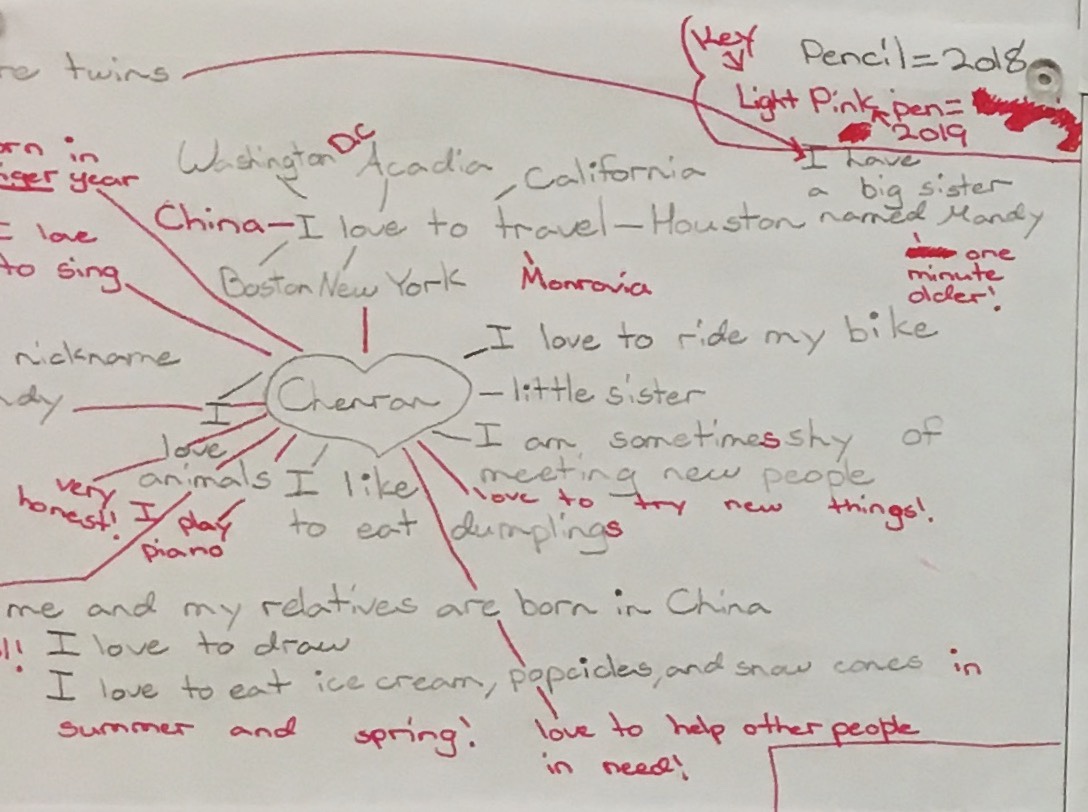 Key
Pencil = 2018
re twins
Light Pink pen =
2019
Washington DC
Acadia
California
I have
a big sister
named Mandy
one
minute
older!
orn in
iger year
China - I love to travel - Houston
love
to sing
Boston New York
Monrovia
I love to ride my bike
nickname
dy
Chenran
- little sister
I
love
animals
I am sometimes shy of
meeting new people
very
honest!
I play
piano
I like
to eat dumplings
love to try new things!
me and my relatives are born in China
!! I love to draw
I love to eat ice cream, popcicles, and snow cones in
summer and spring!
love to help other people
in need!